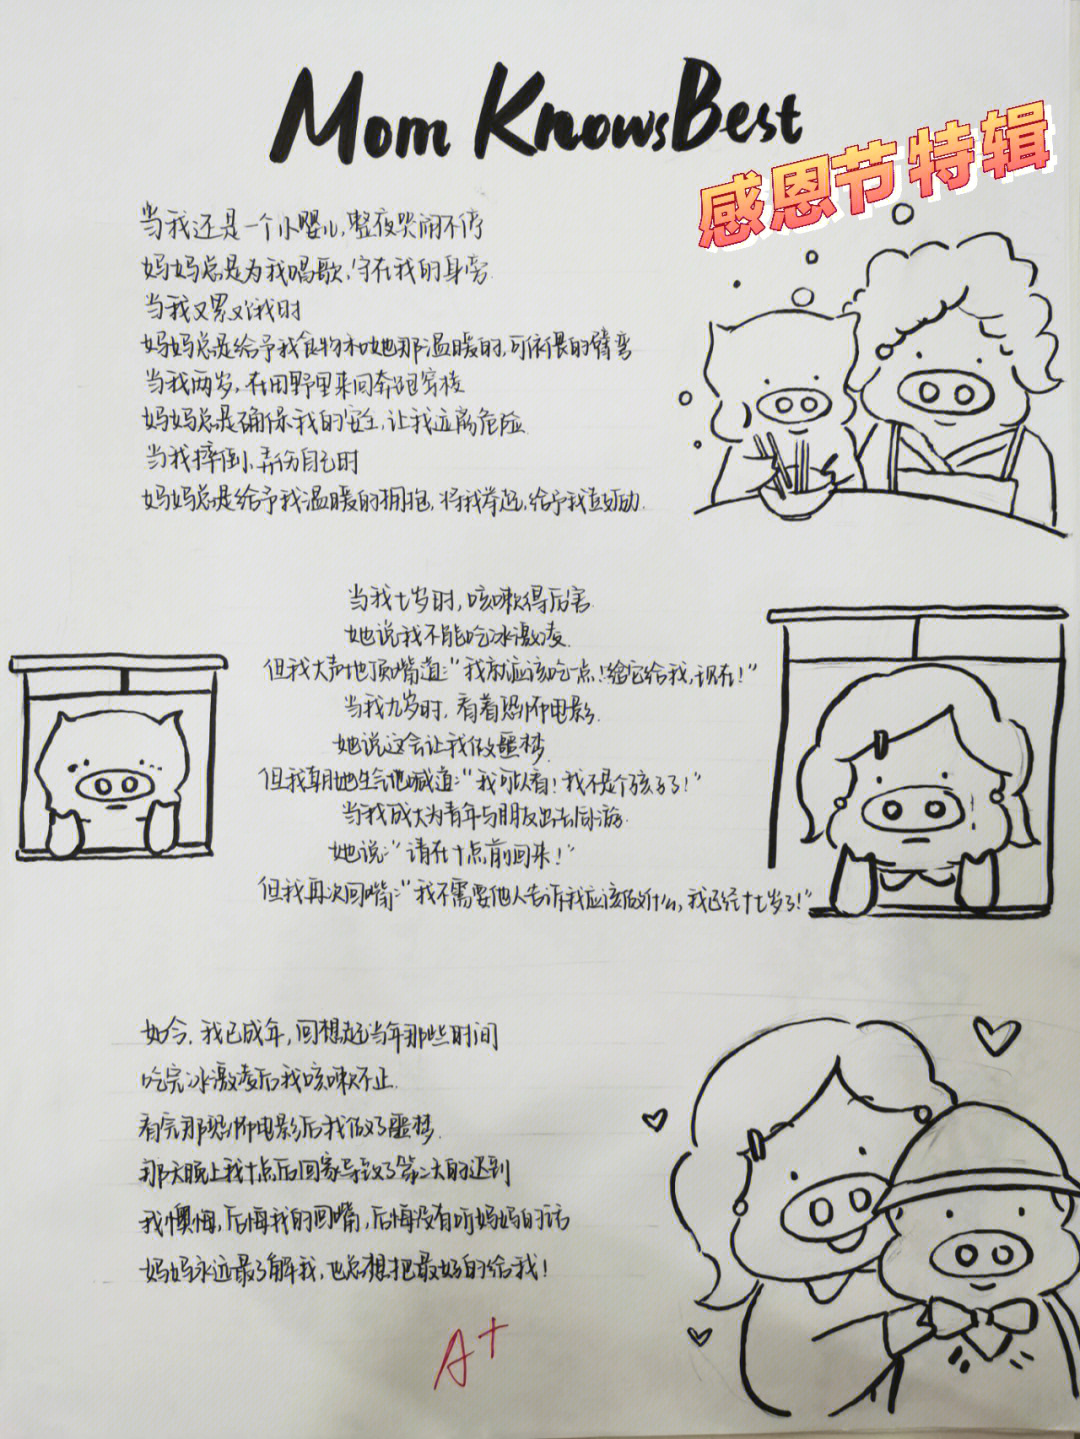 Mom Knows Best
感恩节特辑
当我还是一个小婴儿,整夜哭闹不停
妈妈总是为我唱歌,守在我的身旁.
当我又累又饿时
妈妈总是给予我食物和她那温暖的,可依偎的臂弯
当我两岁,在田野里来回奔跑穿梭
妈妈总是确保我的安全,让我远离危险.
当我摔倒,弄伤自己时
妈妈总是给予我温暖的拥抱,将我举起,给予我鼓励.
当我七岁时,咳嗽得厉害.
她说我不能吃冰激凌.
但我大声地顶嘴道:"我就应该吃一点!给它给我,现在!"
当我九岁时,看着恐怖电影.
她说这会让我做噩梦.
但我朝她生气地喊道:"我可以看!我不是个孩子了!"
当我成大为青年与朋友出去同游.
她说:"请在十点前回来!"
但我再次回嘴:"我不需要他人告诉我应该做什么,我已经十七岁了!"
如今,我已成年,回想起当年那些时间
吃完冰激凌后我咳嗽不止.
看完那恐怖电影后我做了噩梦.
那天晚上我十点后回家导致了第二天的迟到
我懊悔,后悔我的回嘴,后悔没有听妈妈的话
妈妈永远最了解我,也总想把最好的给我!
A+